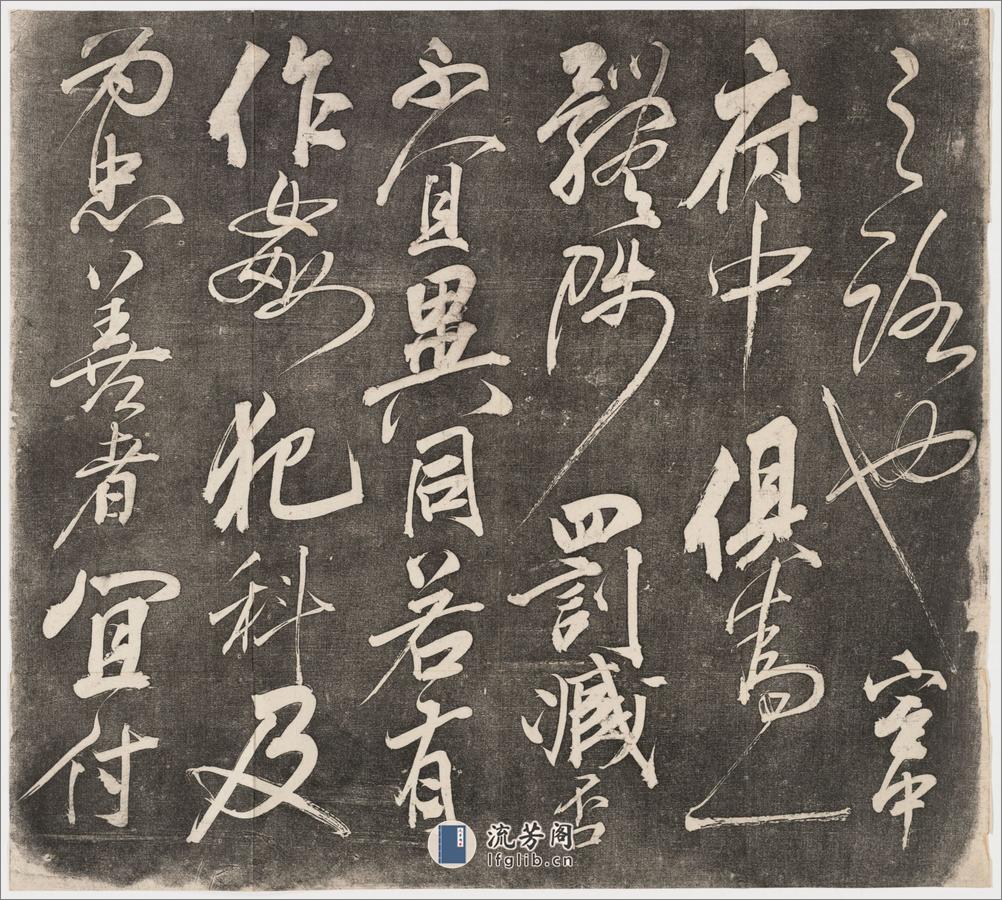 之路也宮中
府中俱為一
體陟罰臧否
不宜異同若有
作姦犯科及
為忠善者宜付
流芳阁
lfglib.cn